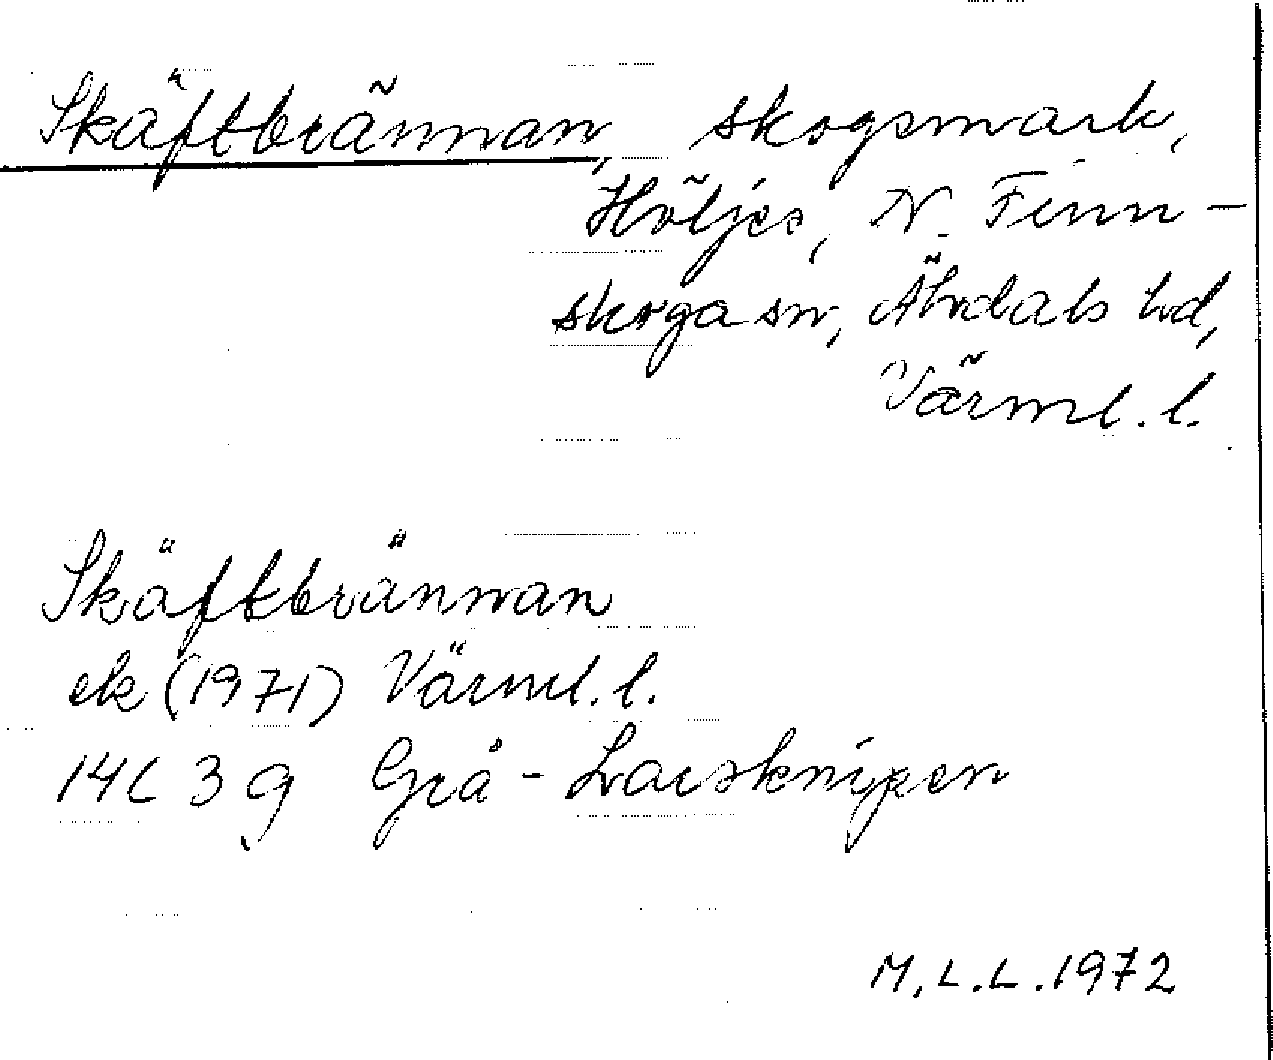 Skäftbrännan, skogsmark,
Höljes, N. Finn-
skoga sn, Älvdals hd,
Värml. l.
Skäftbrännan
ek (1971) Värml. l.
14C 3g Grå-Larsknipen
M.L.L. 1972